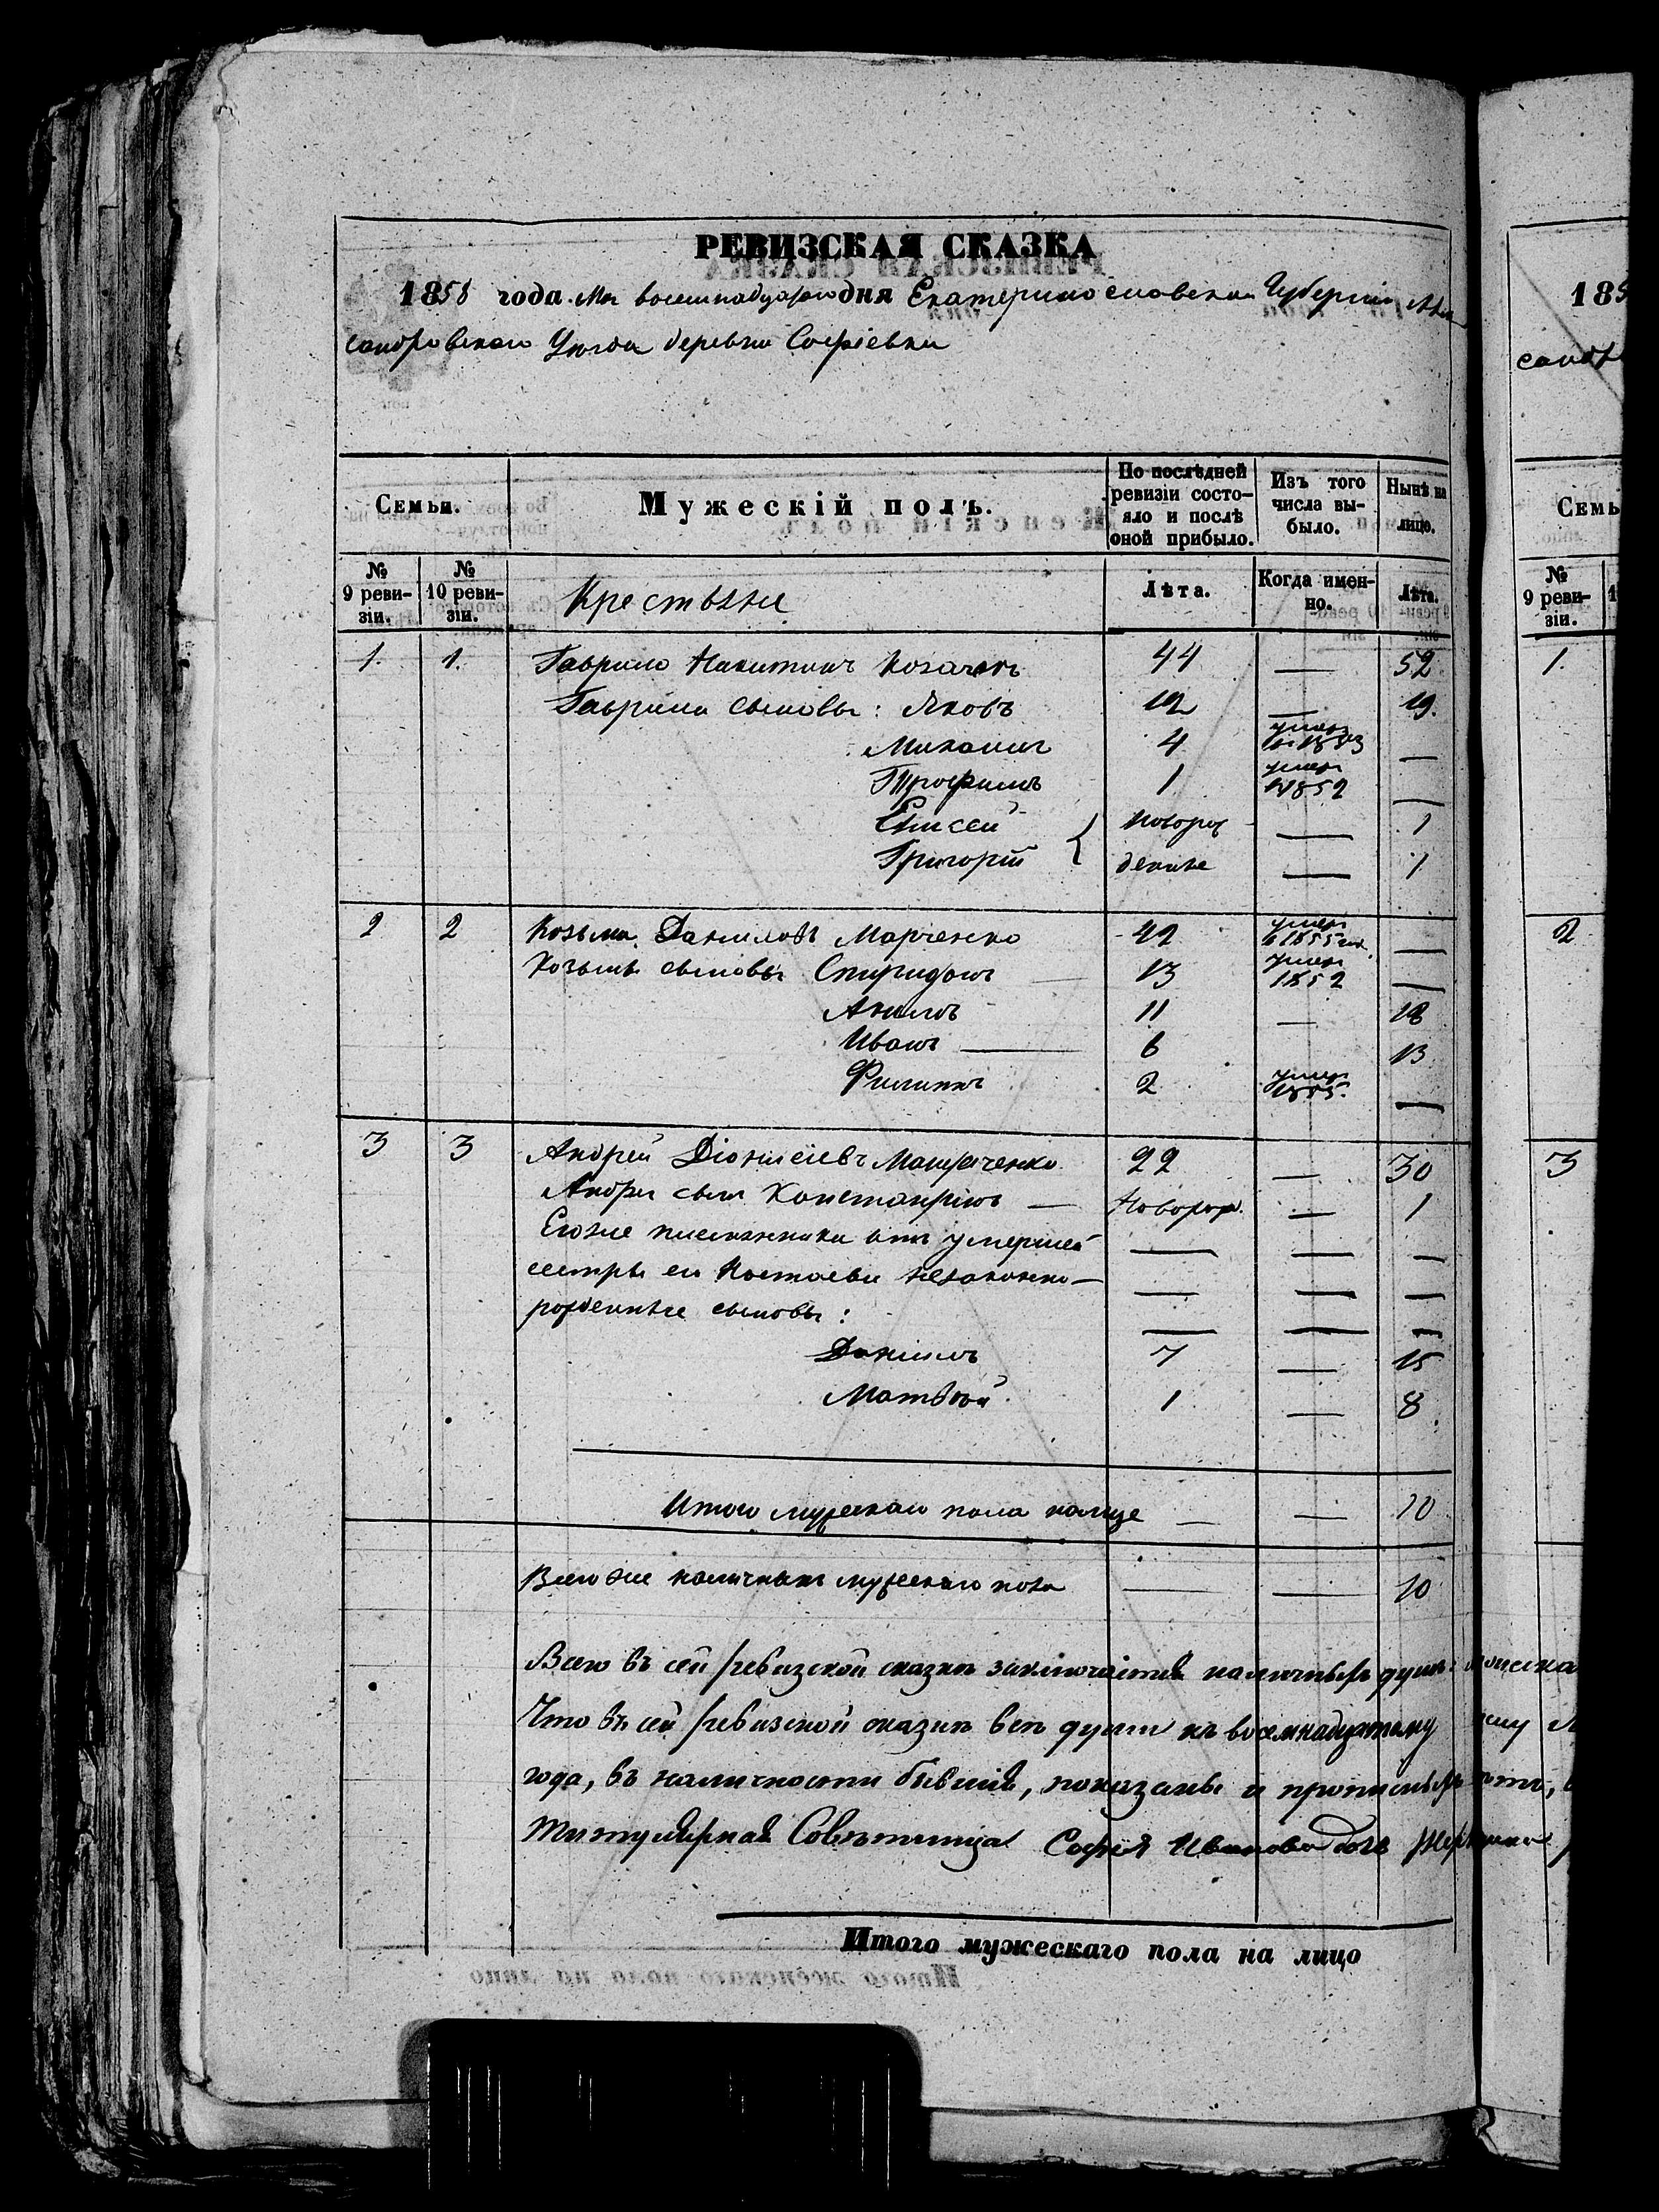 РЕВИЗСКАЯ СКАЗКА
1858 года Мая восемнадцатого дня Екатеринославской Губерніи Алек
сандровскаго Уѣзда деревни Софіевки
Семьи.
Мужескій полъ.
По послѣдней ревизіи состо-яло и послѣ оной прибыло.
Изъ того числа вы-было.
Нынѣ на лицо.
№ 9 реви-зіи.
№ 10 реви-зіи.
Крестьяне
Лѣта.
Когда имен-но.
Лѣта.
1. 1. Гаврило Никитинъ Козачекъ 44 — 52
Гаврилы сыновья: Яковъ 12 — 19.
Михаилъ 4 умеръ 1853 —
Трофимъ 1 умеръ 1852 —
Елисей { новорож — 1
Григорій денные — 1
2 2 Козьма Даниловъ Марченко 42 умеръ в 1855 год. —
Козьмы сыновья Спиридонъ 13 умеръ 1852 —
Акимъ 11 — 18
Иванъ — 6 13
Филипъ 2 умеръ 1855. —
3 3 Андрей Діонисіевъ 22 — 30
Андрея сынъ Константинъ — Новорож. — 1
Его же племянники отъ умершей — — —
сестры его Настасьи незаконно- — — —
рожденные сыновья: — — —
Данило 7 — 15
Матвѣй 1 — 8
Итого мужескаго пола налицо — — 10
Всего же наличныхъ мужескаго пола — — 10
Всего въ сей ревизской сказкѣ заключается наличныхъ душъ
Что въ сей ревизской сказкѣ всѣ души къ восемнадцатому
года, въ наличности бывшія, показаны и прописныхъ
Титулярная Совѣтница Софія Иванова дочь
Итого мужескаго пола на лицо
185
санд
Семь
№ 9 реви-зіи.
1.
2
3